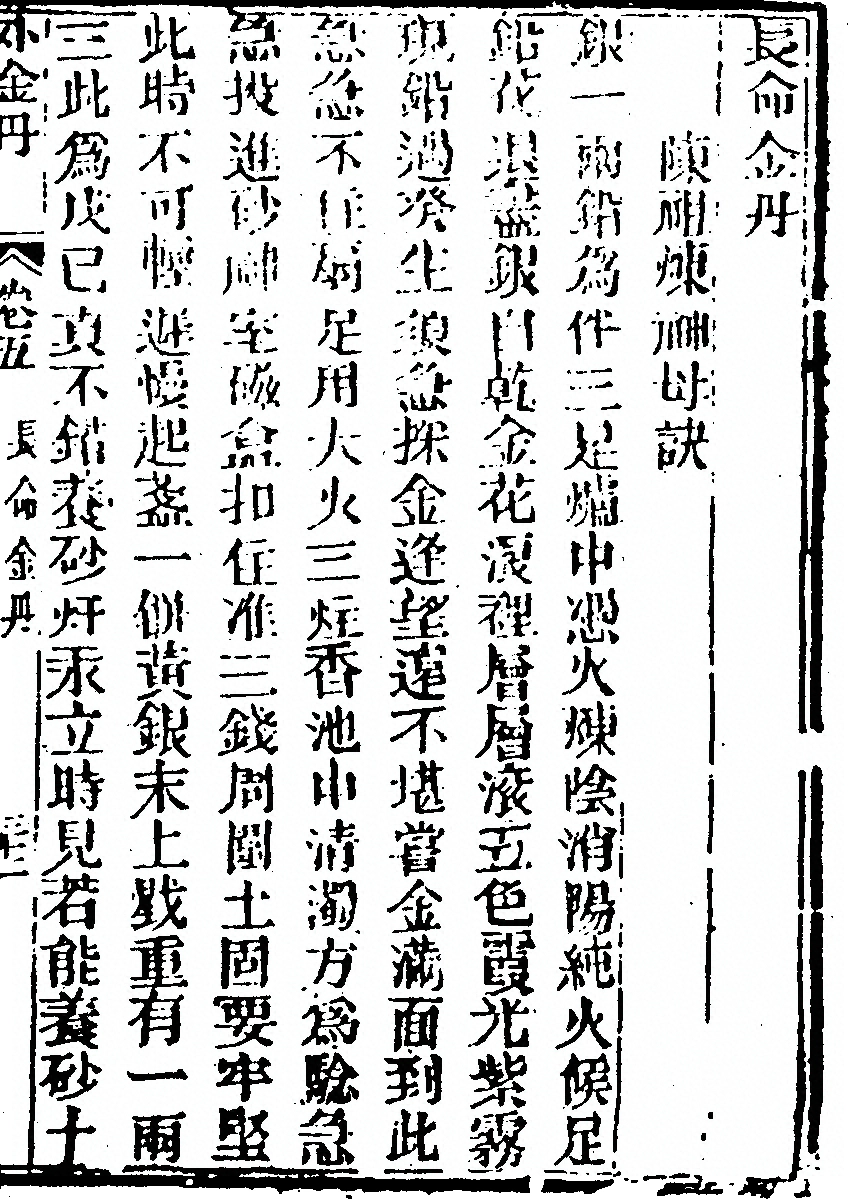 長命金丹
陳祖煉祖母訣
銀一兩鉛為伴三足爐中慇火煉陰消陽純火候足
鉛花退盡銀自乾金花滾裡層層滚五色霞光紫霧
現鉛遇癸生須急採金逢望遠不堪嘗金滿面到此
急急不住扇足用大火三炷香池中清濁方為驗急
急投進砂硼室磁盒扣住准三錢周圍土固要牢堅
此時不可慳遲慢起盞一個黃銀末上戥重有一兩
三此為戊己真不錯養砂奸汞立時見若能養砂十
外金丹
卷五
長命金丹